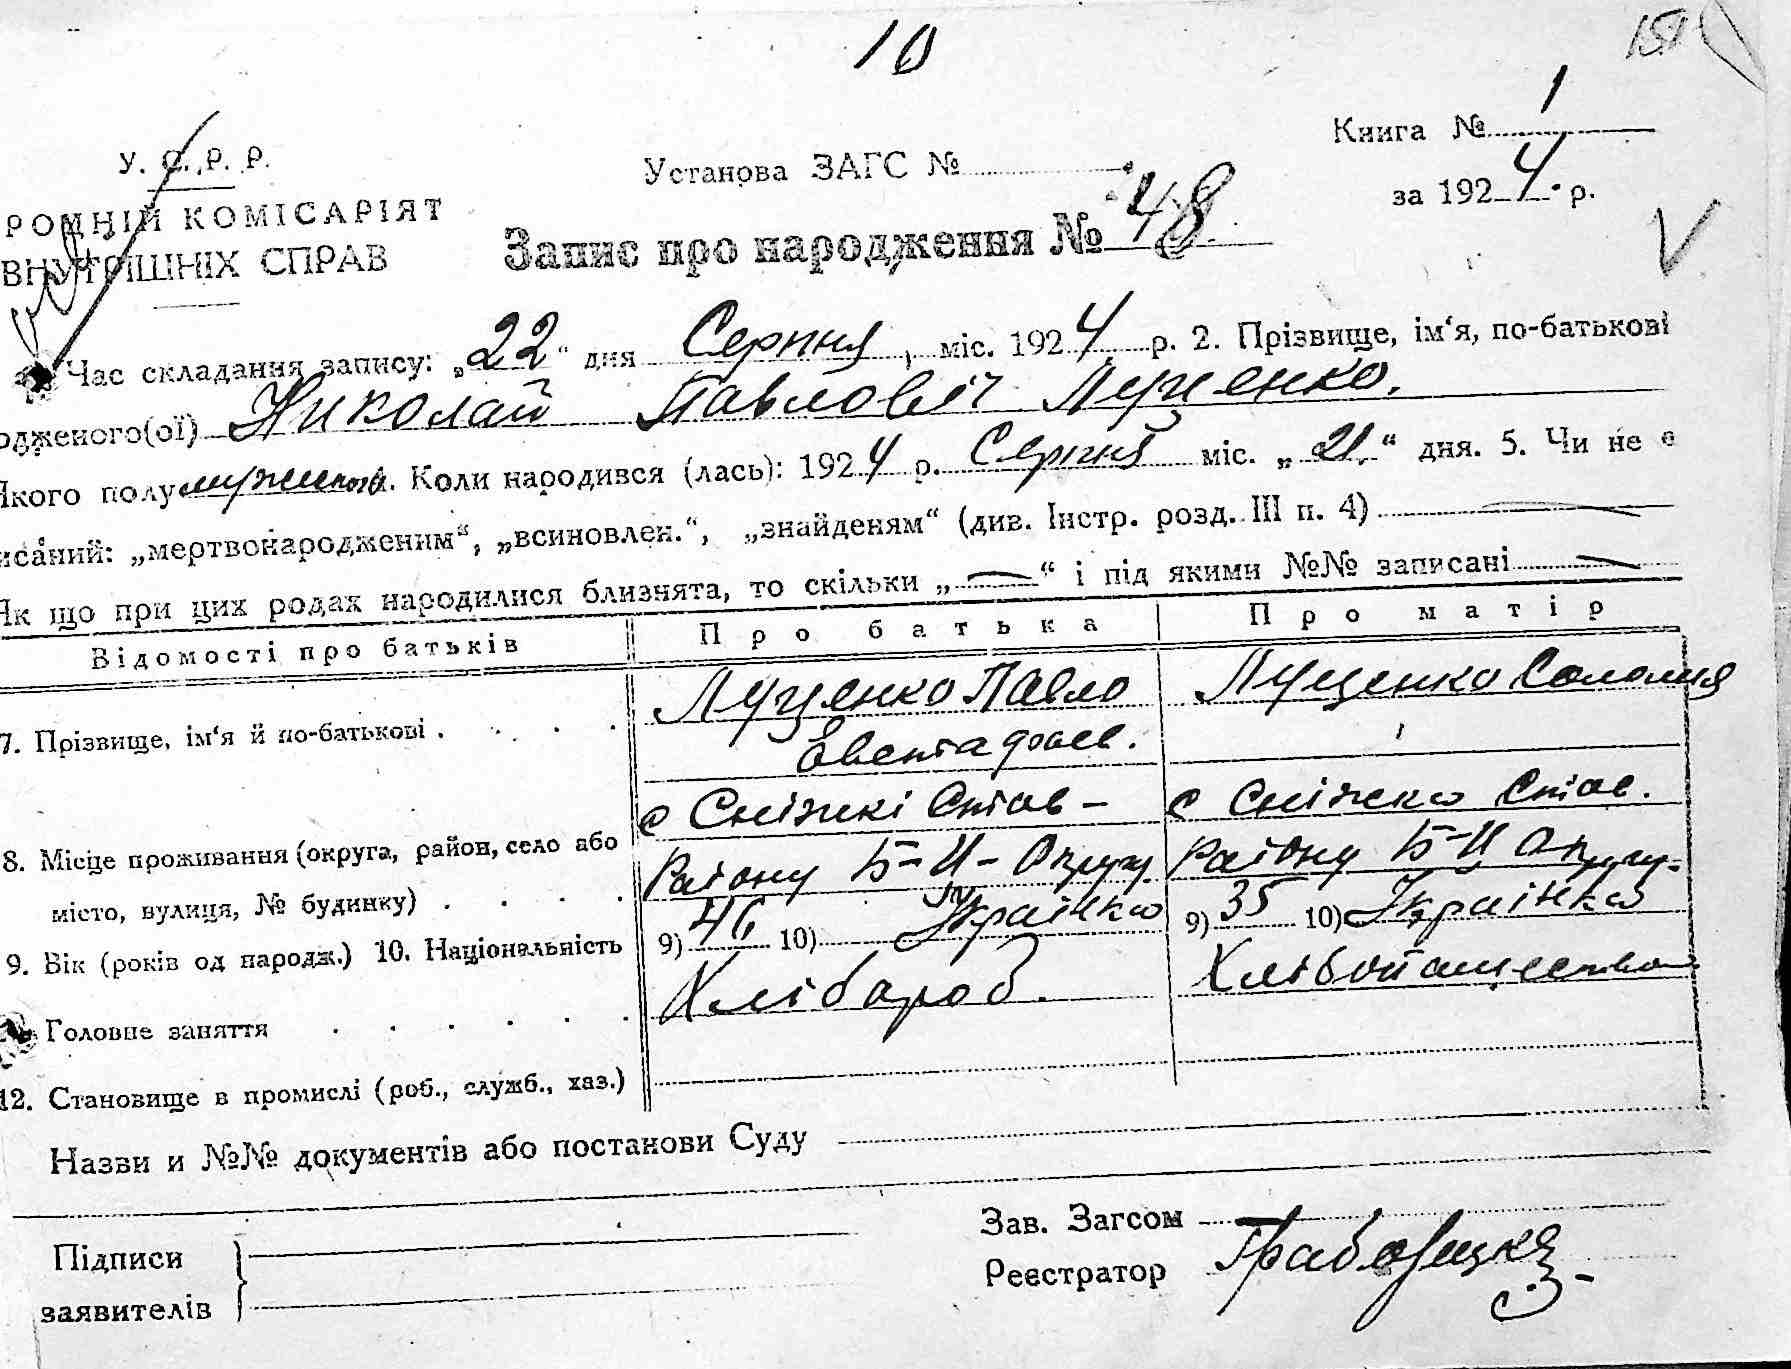 10
151
Книга № 1
У. С. Р. Р.
Установа ЗАГС №
за 1924 р.
РОДНІЙ КОМІСАРІЯТ
ВНУТРІШНІХ СПРАВ
Запис про народження № 48
Час складання запису: „22“ дня Серпня, міс. 1924 р. 2. Прізвище, ім‘я, по-батькові
одженого(ої) Николай Павловіч Луценко.
Якого полу мужеского. Коли народився (лась): 1924 р. Серпня міс. „21“ дня. 5. Чи не є
исаний: „мертвонародженим“, „всиновлен.“, „знайденям“ (див. Інстр. розд. III п. 4)
Як що при цих родах народилися близнята, то скільки „—“ і під якими №№ записані
Відомості про батьків Про батька Про матір
7. Прізвище, ім‘я й по-батькові Луценко Павло Луценко Соломия
Евстафьев.
с Сніжкі Став- с Сніжки Став.
8. Місце проживання (округа, район, село або Району Б-Ц- Округу Району Б-Ц Округу
місто, вулиця, № будинку)
9. Вік (років од народж.) 10. Національність 9) 46 10) Українка 9) 35 10) Українка
Головне заняття Хлібароб. Хлібопашество
12. Становище в промислі (роб., служб., хаз.)
Назви и №№ документів або постанови Суду
Зав. Загсом
Підписи
заявителів
Реєстратор